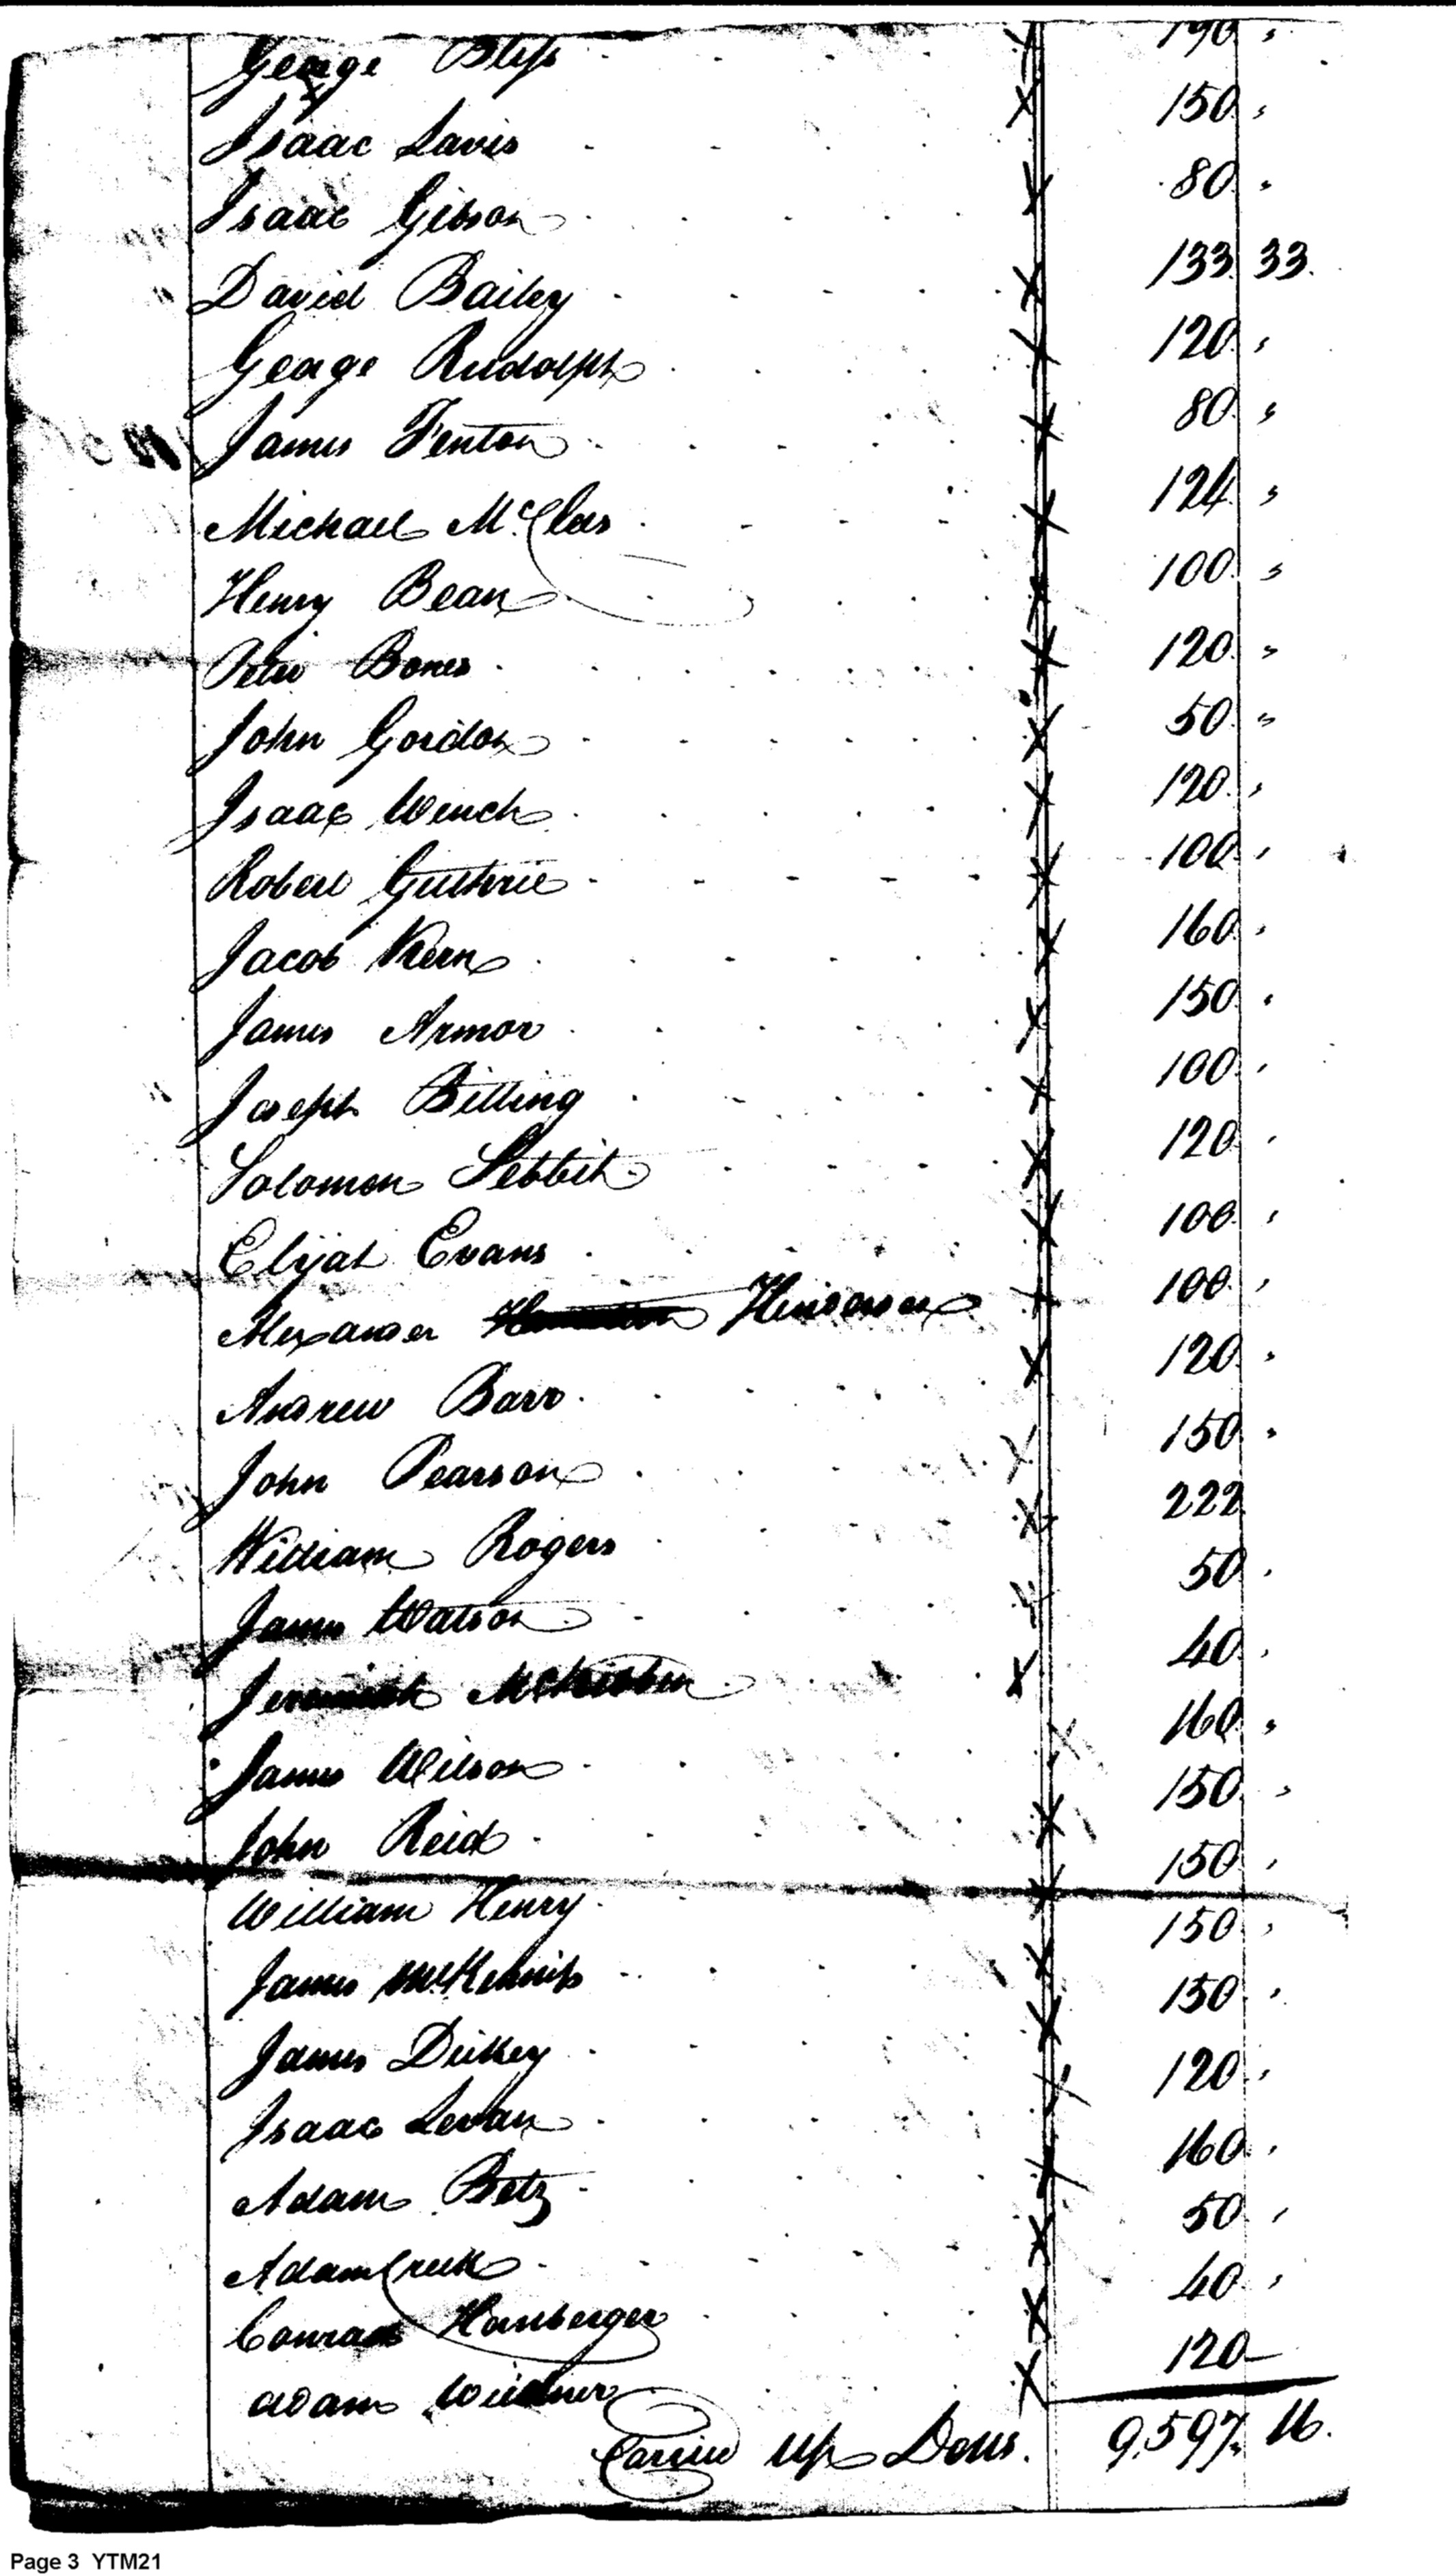 George Bless 190 "
Isaac Davis 150 "
Isaac Gibson 80 "
David Bailey 133 33
George Rudolph 120 "
James Fenton 80 "
Michael McClees 124 "
Henry Bean 100 "
Peter Bones 120 "
John Gordon 50 "
Isaac Wench 120 "
Robert Guthrie 100 "
Jacob Kern 160 "
James Armor 150 "
Joseph Billing 100 "
Solomon 120 "
Elijah Evans 100 "
Alexander Henderson 100 "
Andrew Barr 120 "
John Pearson 150 "
William Rogers 222
James Watson 50 "
Jeremiah McKibben 40 "
James Wilson 160 "
John Reid 150 "
William Henry 150 "
James McKennis 150 "
James Dickey 150 "
Isaac Levan 120 "
Adam Betz 160 "
Adam Creek 50 "
Conrad Hamberger 40 "
Adam Widner 120 —
Carried up Dolls. 9,597. 16.
Page 3 YTM21